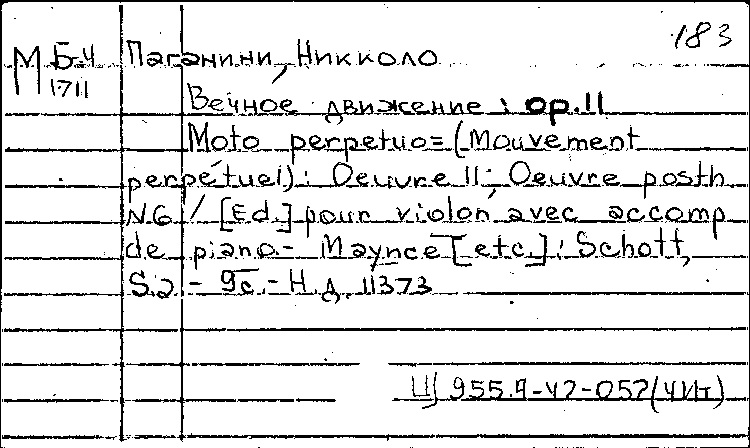 183
М Б-4 Паганини, Никколо
1711
Вечное движение : op.11
Moto perpetuo=(Mouvement
perpétuel): Oeuvre 11; Oeuvre posth
N6 / [Ed.] pour violon avec accomp
de piano.- Maynce [etc.]: Schott,
S.a. - 9с. - Н.д. 11373
Ц 955.9-42-052(4Ит)